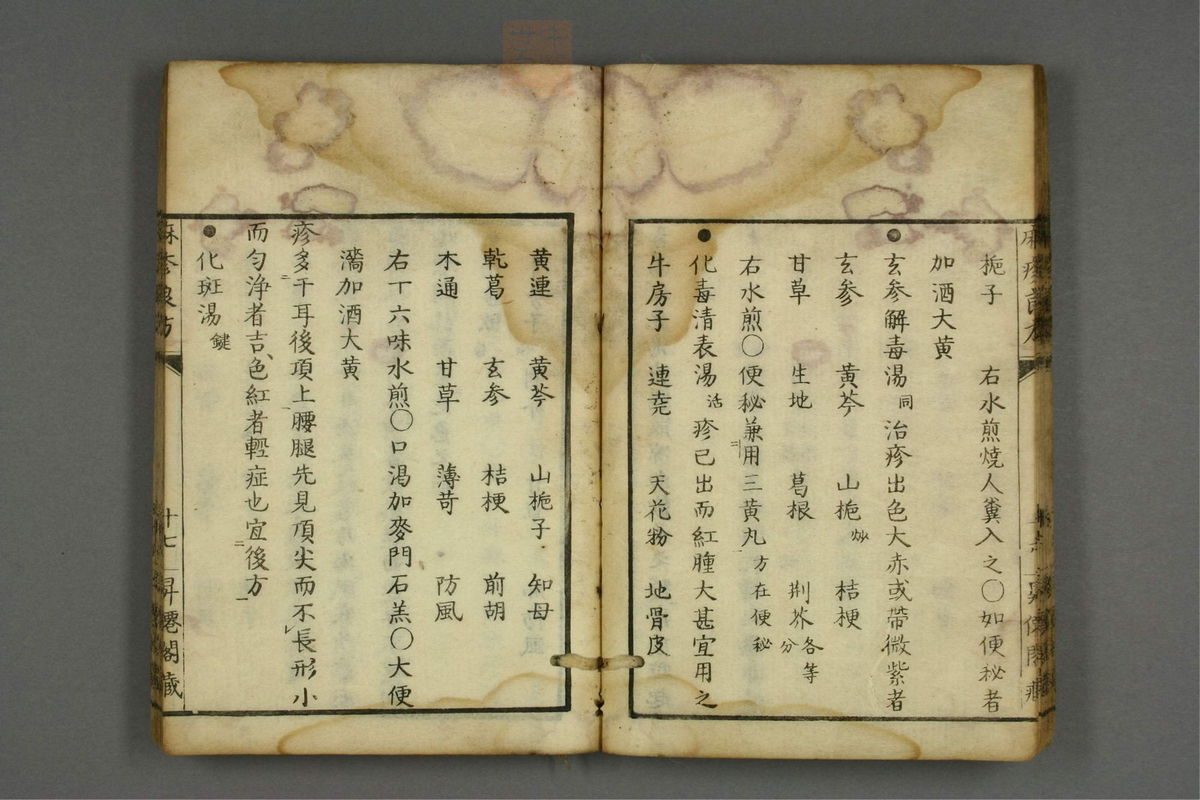 梔子　右水煎燒人糞入之〇如便秘者
加酒大黄
●玄参解毒湯同　治疹出色大赤或帶微紫者
玄参　黄芩　山梔炒　桔梗
甘草　生地　葛根　荆芥各等分
右水煎〇便秘兼用三黄丸方在便秘
●化毒清表湯活　疹已出而紅腫大甚宜用之
牛房子　連尭　天花粉　地骨皮
黄連　黄芩　山梔子　知母
乾葛　玄参　桔梗　前胡
木通　甘草　薄苛　防風
右十六味水煎〇口渇加麥門石羔〇大便
濇加酒大黄
疹多于耳後項上腰腿先見頂尖而不長形小
而匀淨者吉色紅者輕症也宜後方
●化斑湯鍵
十七　昇遷閣藏